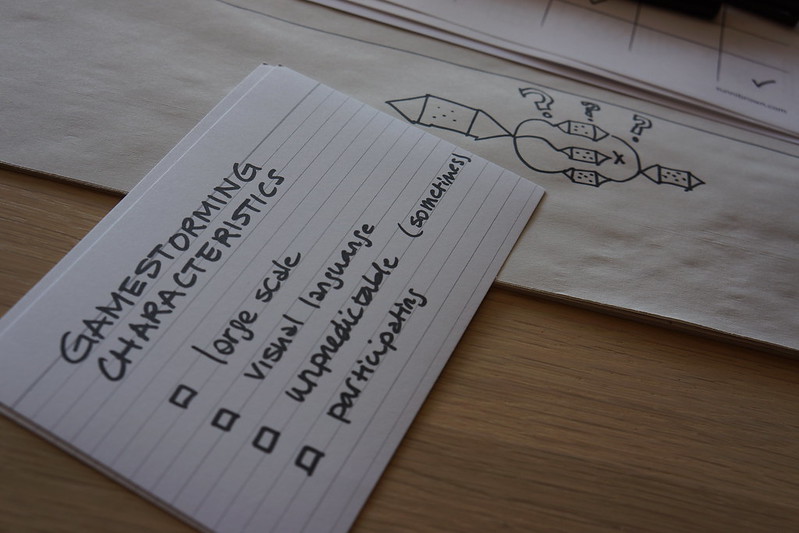 GAMESTORMING
CHARACTERISTICS
large scale
visual languange
unpredictable (sometimes)
participating
? ? ?
x